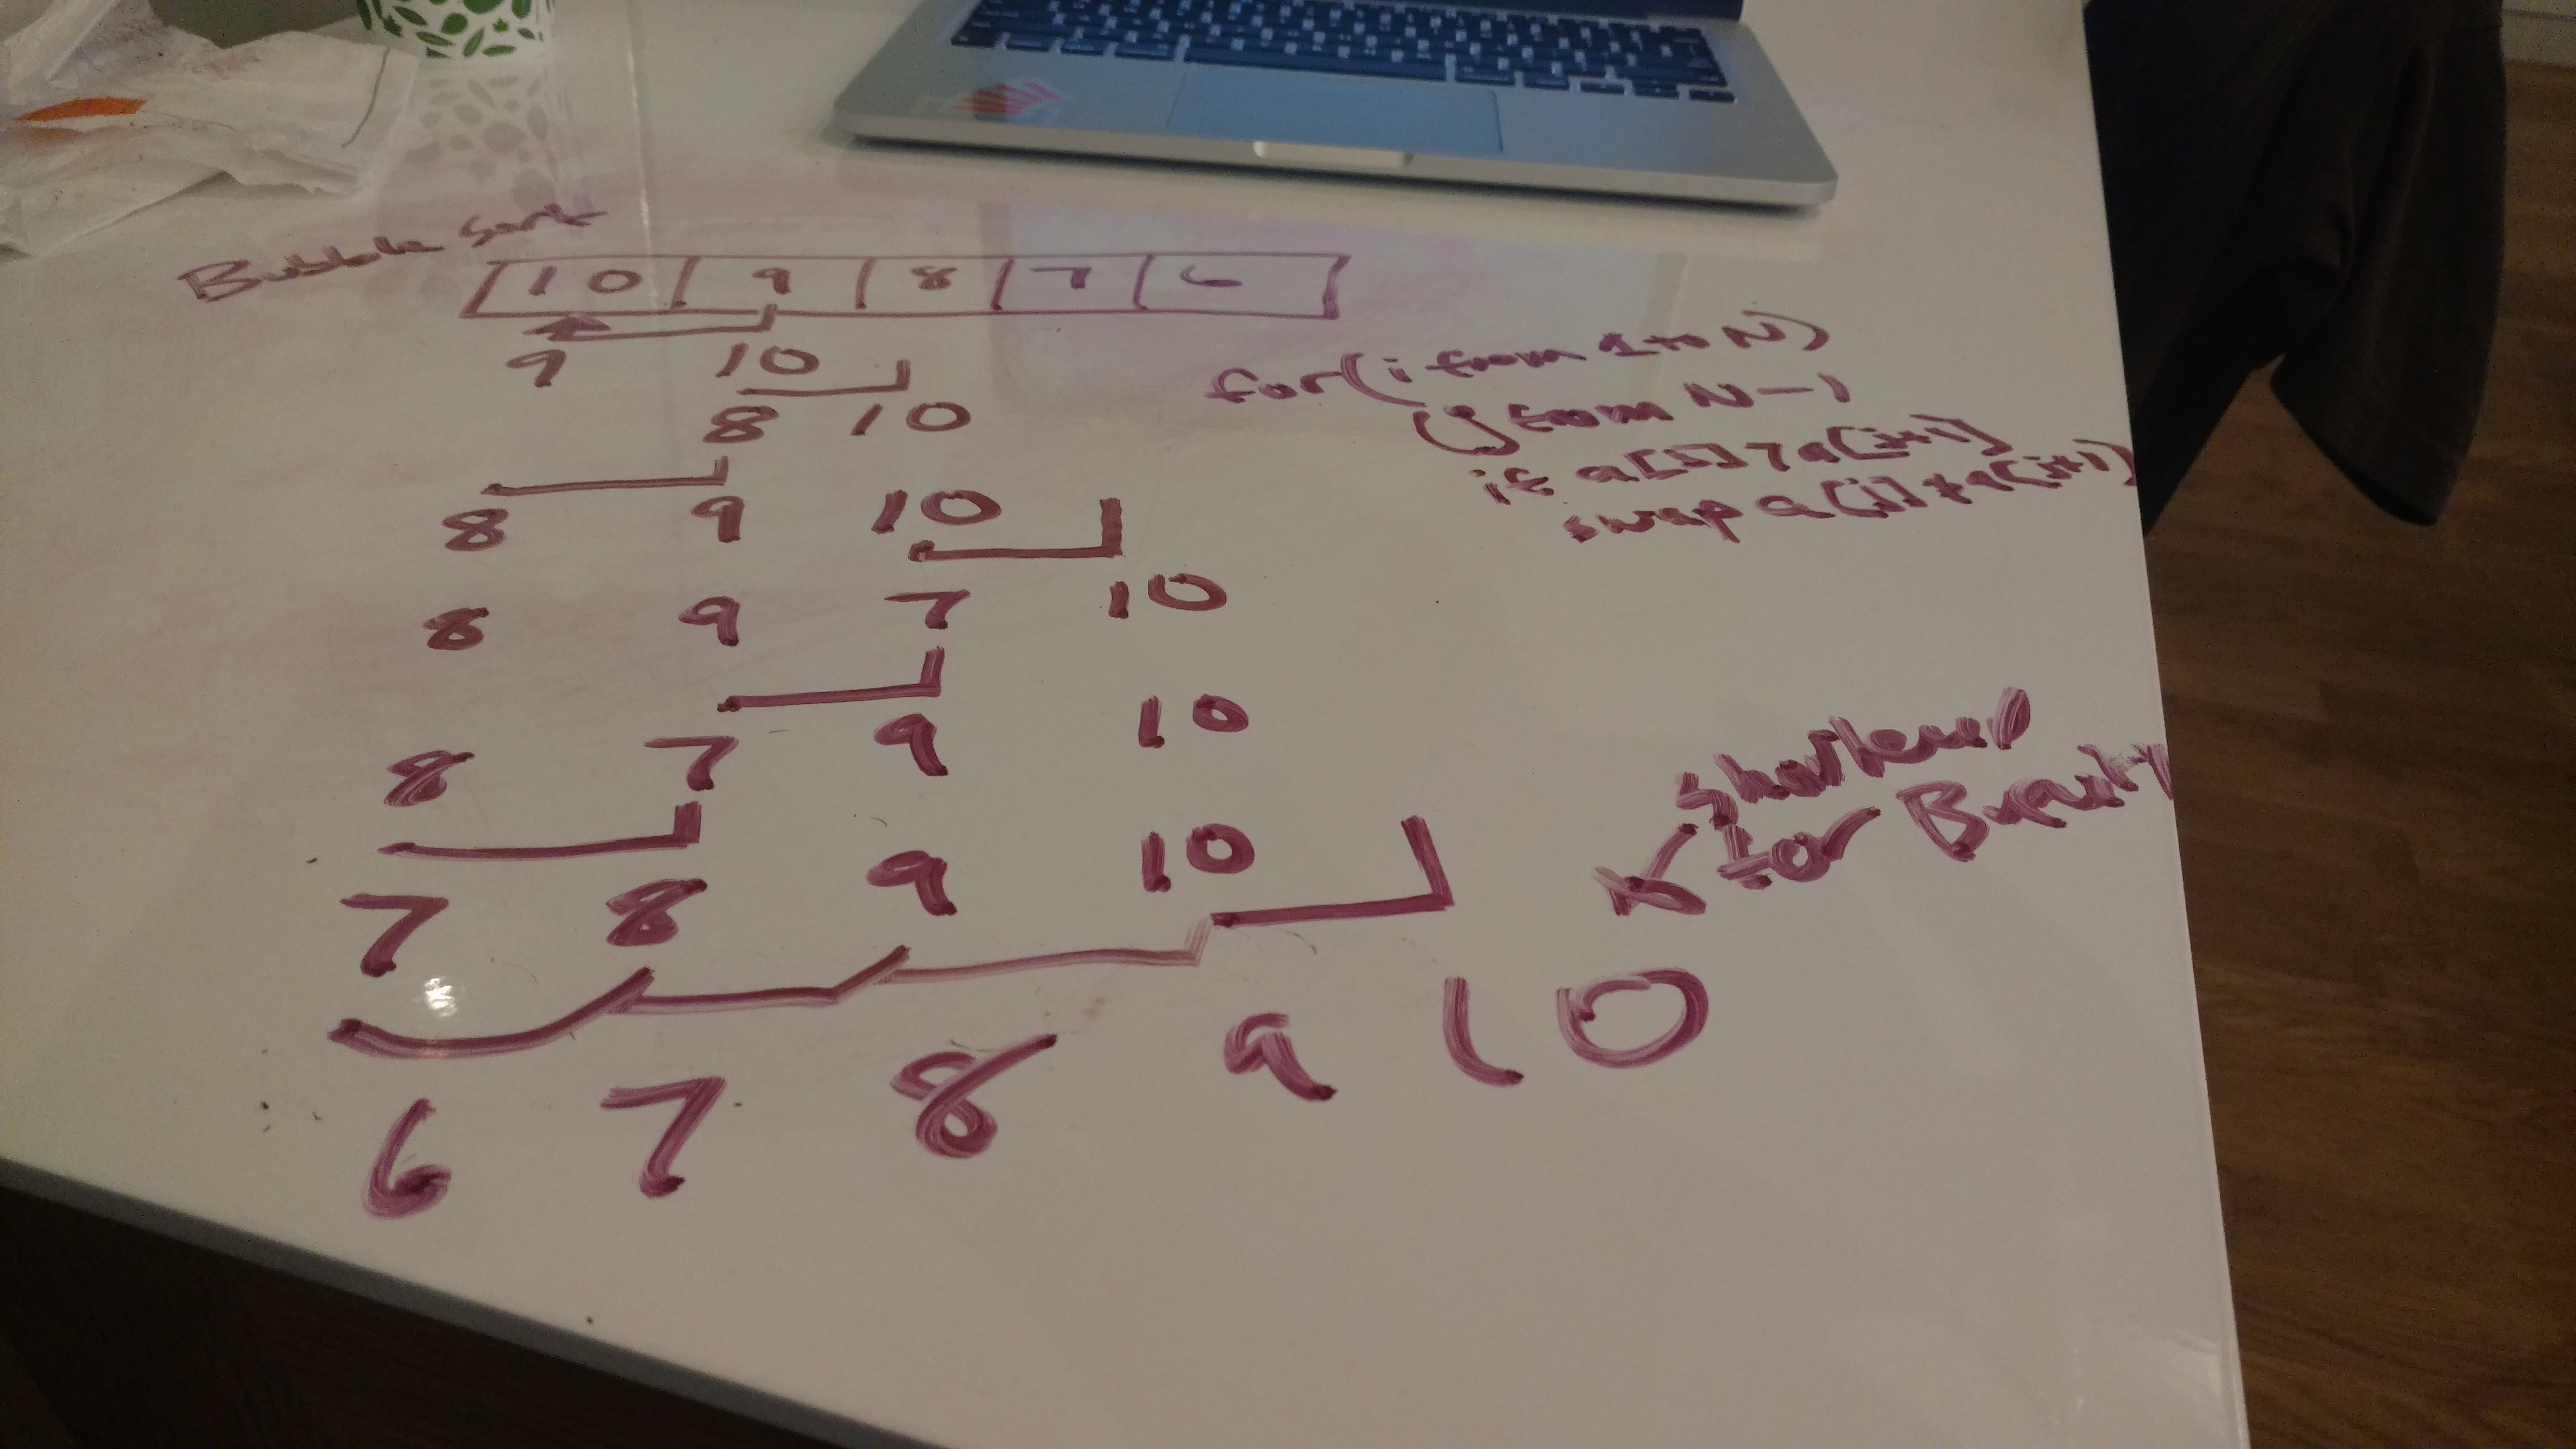 Bubble Sort
10 9 8 7 6
9 10
8 10
8 9 10
8 9 7 10
8 7 9 10
7 8 9 10
6 7 8 9 10
for(i from 1 to N)
(j from N-1
if a[j] > a[j+1]
swap a[j] + a[j+1]
shortened
for Beauty